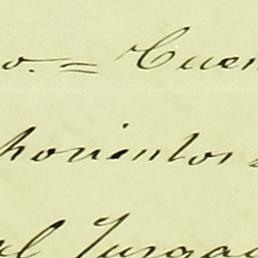 o. = Cuen
horientos
el Juzgad